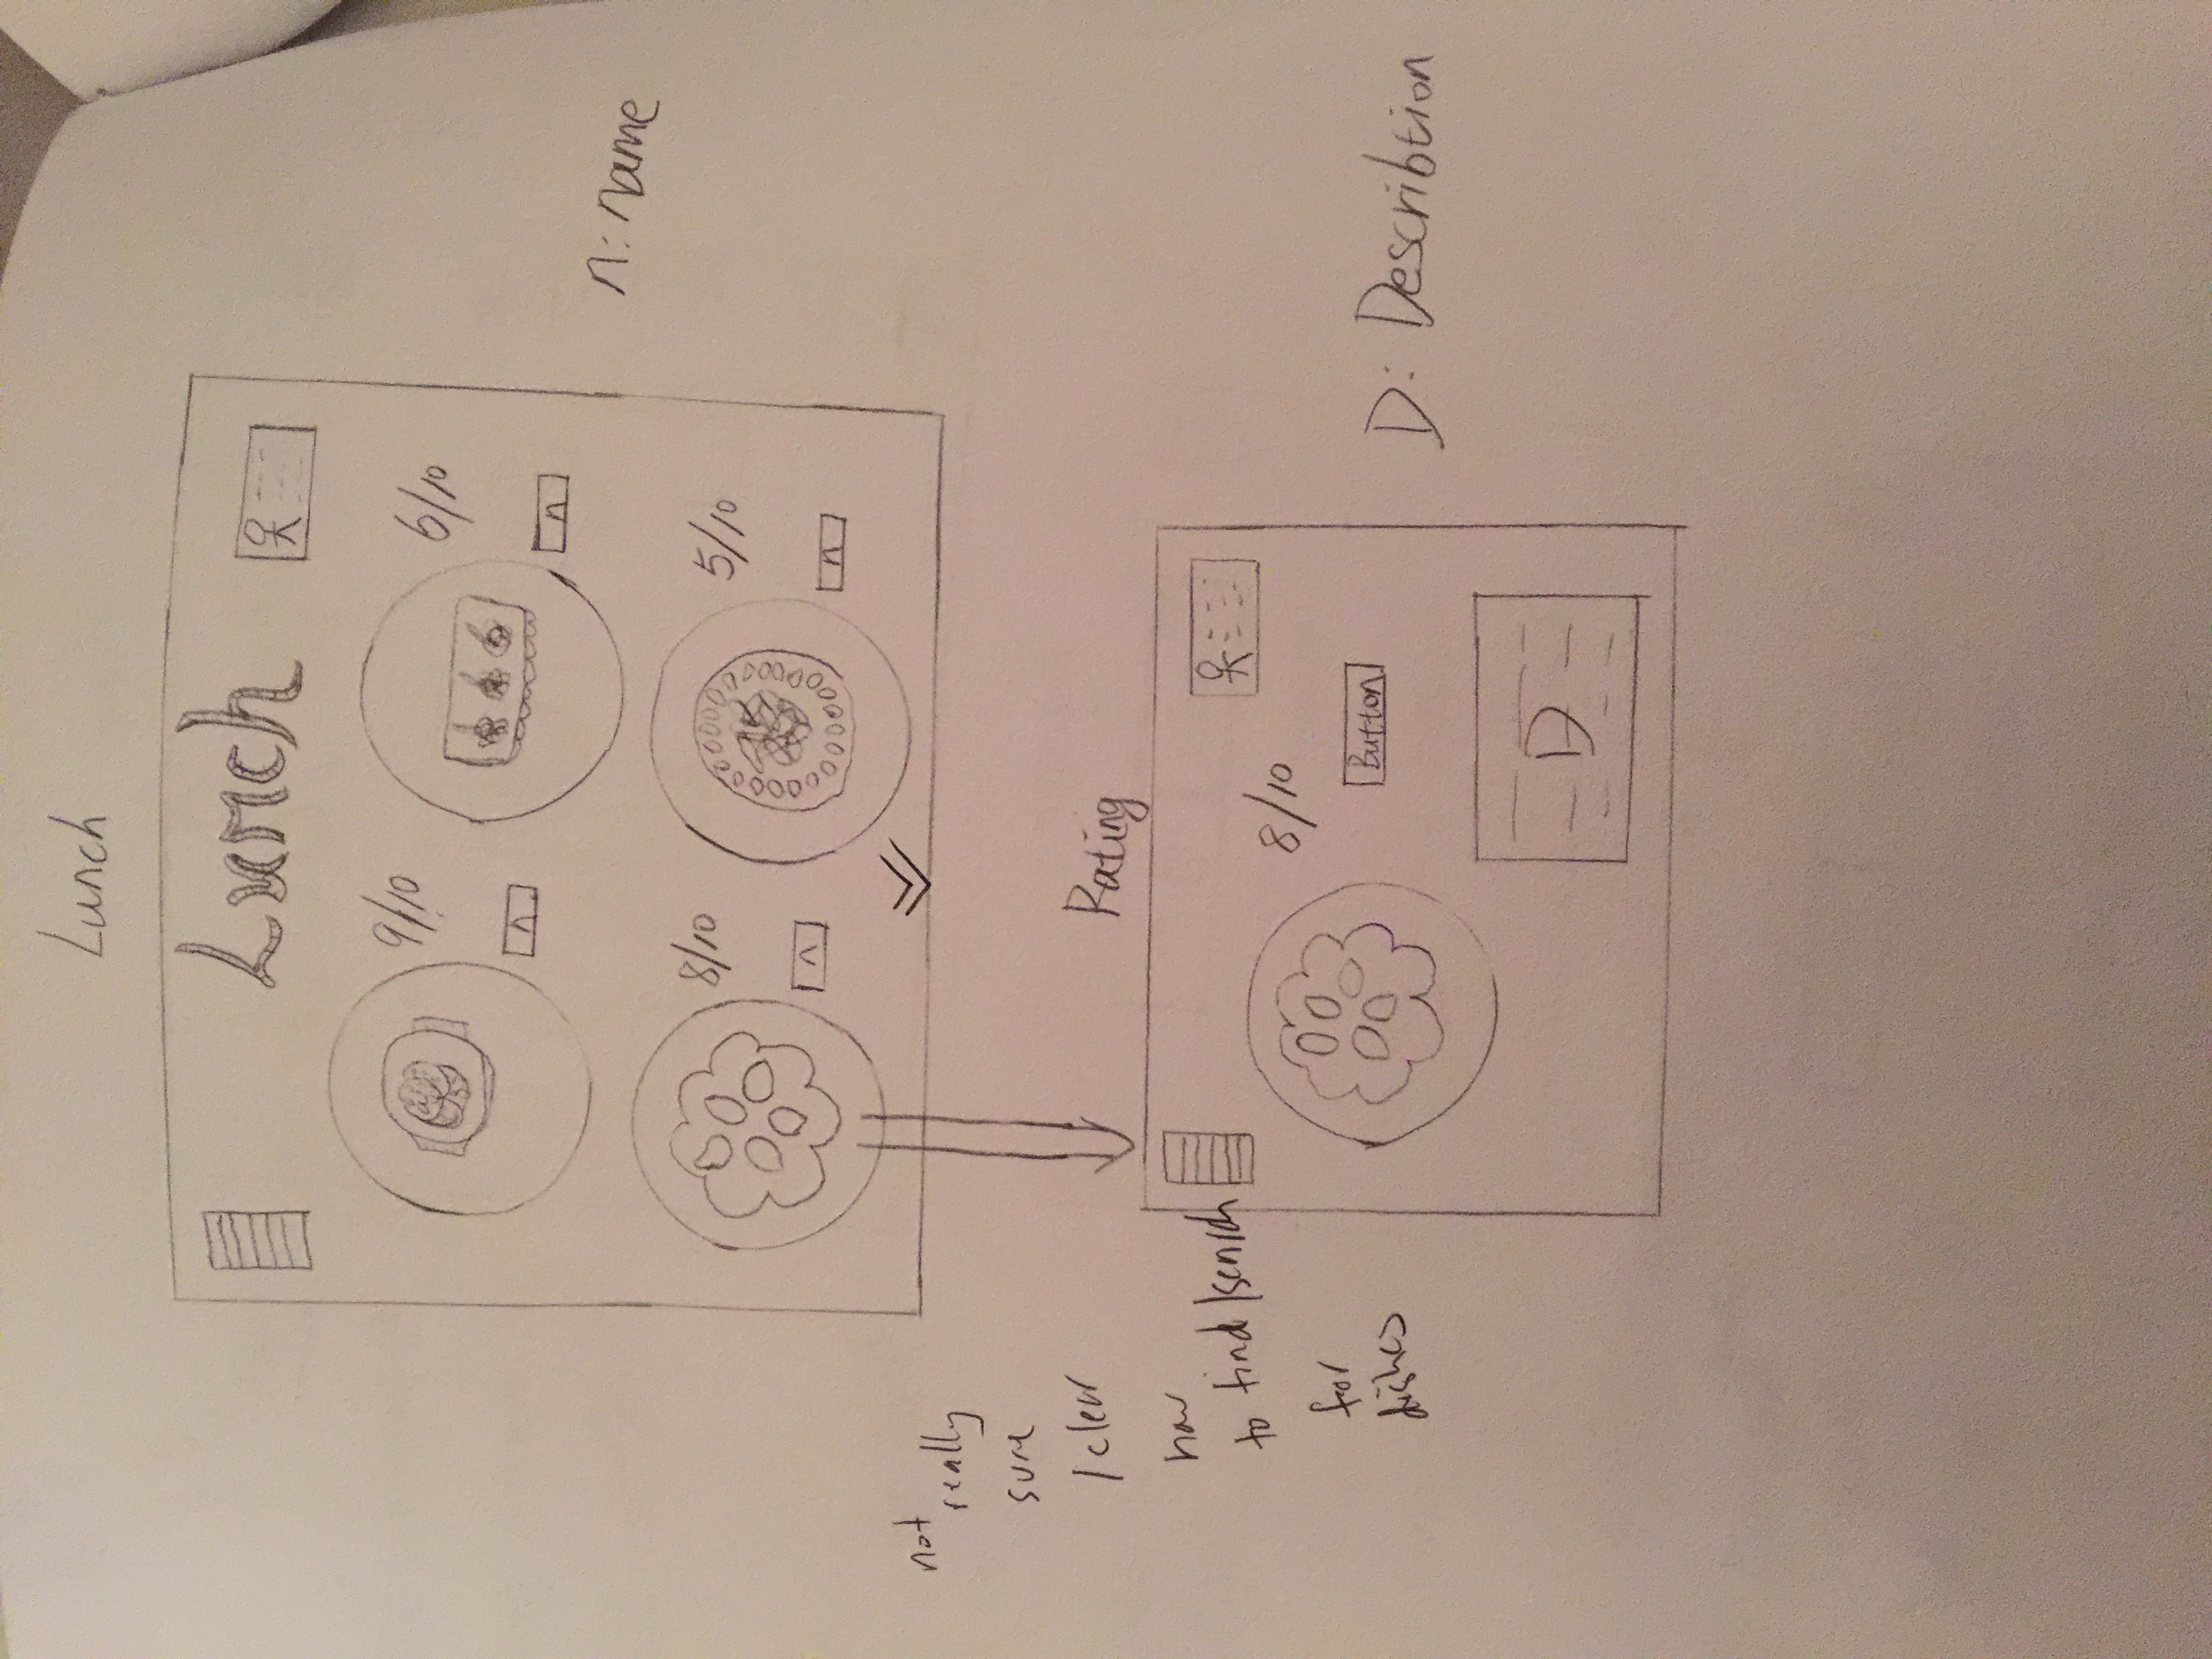 Lunch
Lunch
9/10
6/10
n
n
n: name
8/10
5/10
n
n
not
really
sure
/clear
how
to find/search
for
dishes
Rating
8/10
Button
D: Describtion
D